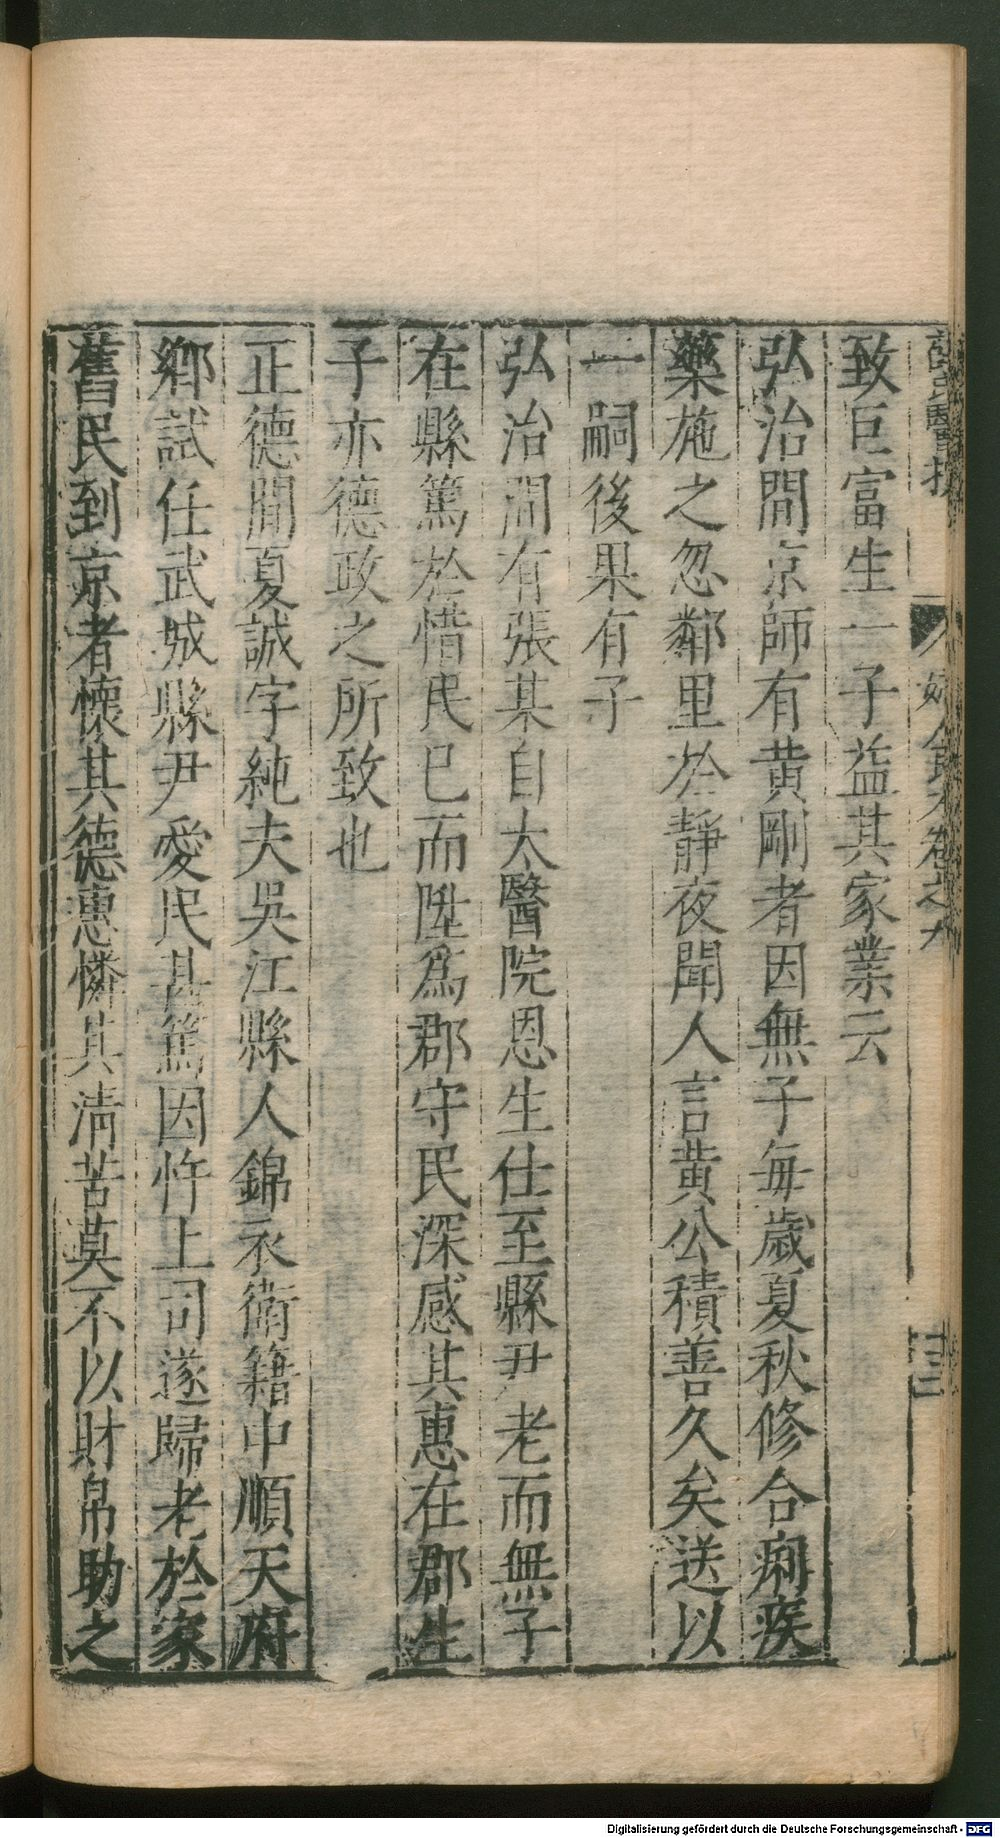 致巨富生一子益其家業云
弘治間京師有黄剛者因無子每歲夏秋修合痢疾
藥施之忽鄰里於靜夜聞人言黄公積善久矣送以
一嗣後果有子
弘治間有張某自太醫院恩生仕至縣尹老而無子
在縣篤於惜民已而陞爲郡守民深感其惠在郡生
子亦德政之所致也
正德間夏誠字純夫吳江縣人錦衣衛籍中順天府
鄉試任武城縣尹愛民甚篤因忤上司遂歸老於家
舊民到京者懷其德惠憐其清苦莫不以財帛助之
卷之九
十三
Digitalisierung gefördert durch die Deutsche Forschungsgemeinschaft - DFG